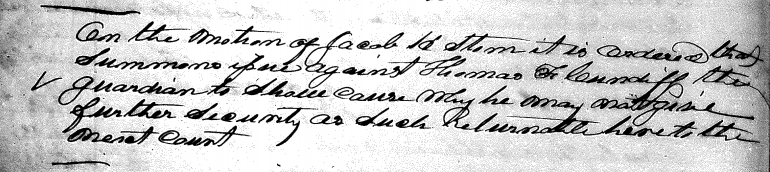 On the motion of Jacob H Stem it is ordered that
Summons issue against Thomas F Cundiff the
guardian to Shew cause why he may not give
further Security as Such Returnable here to the
next Court